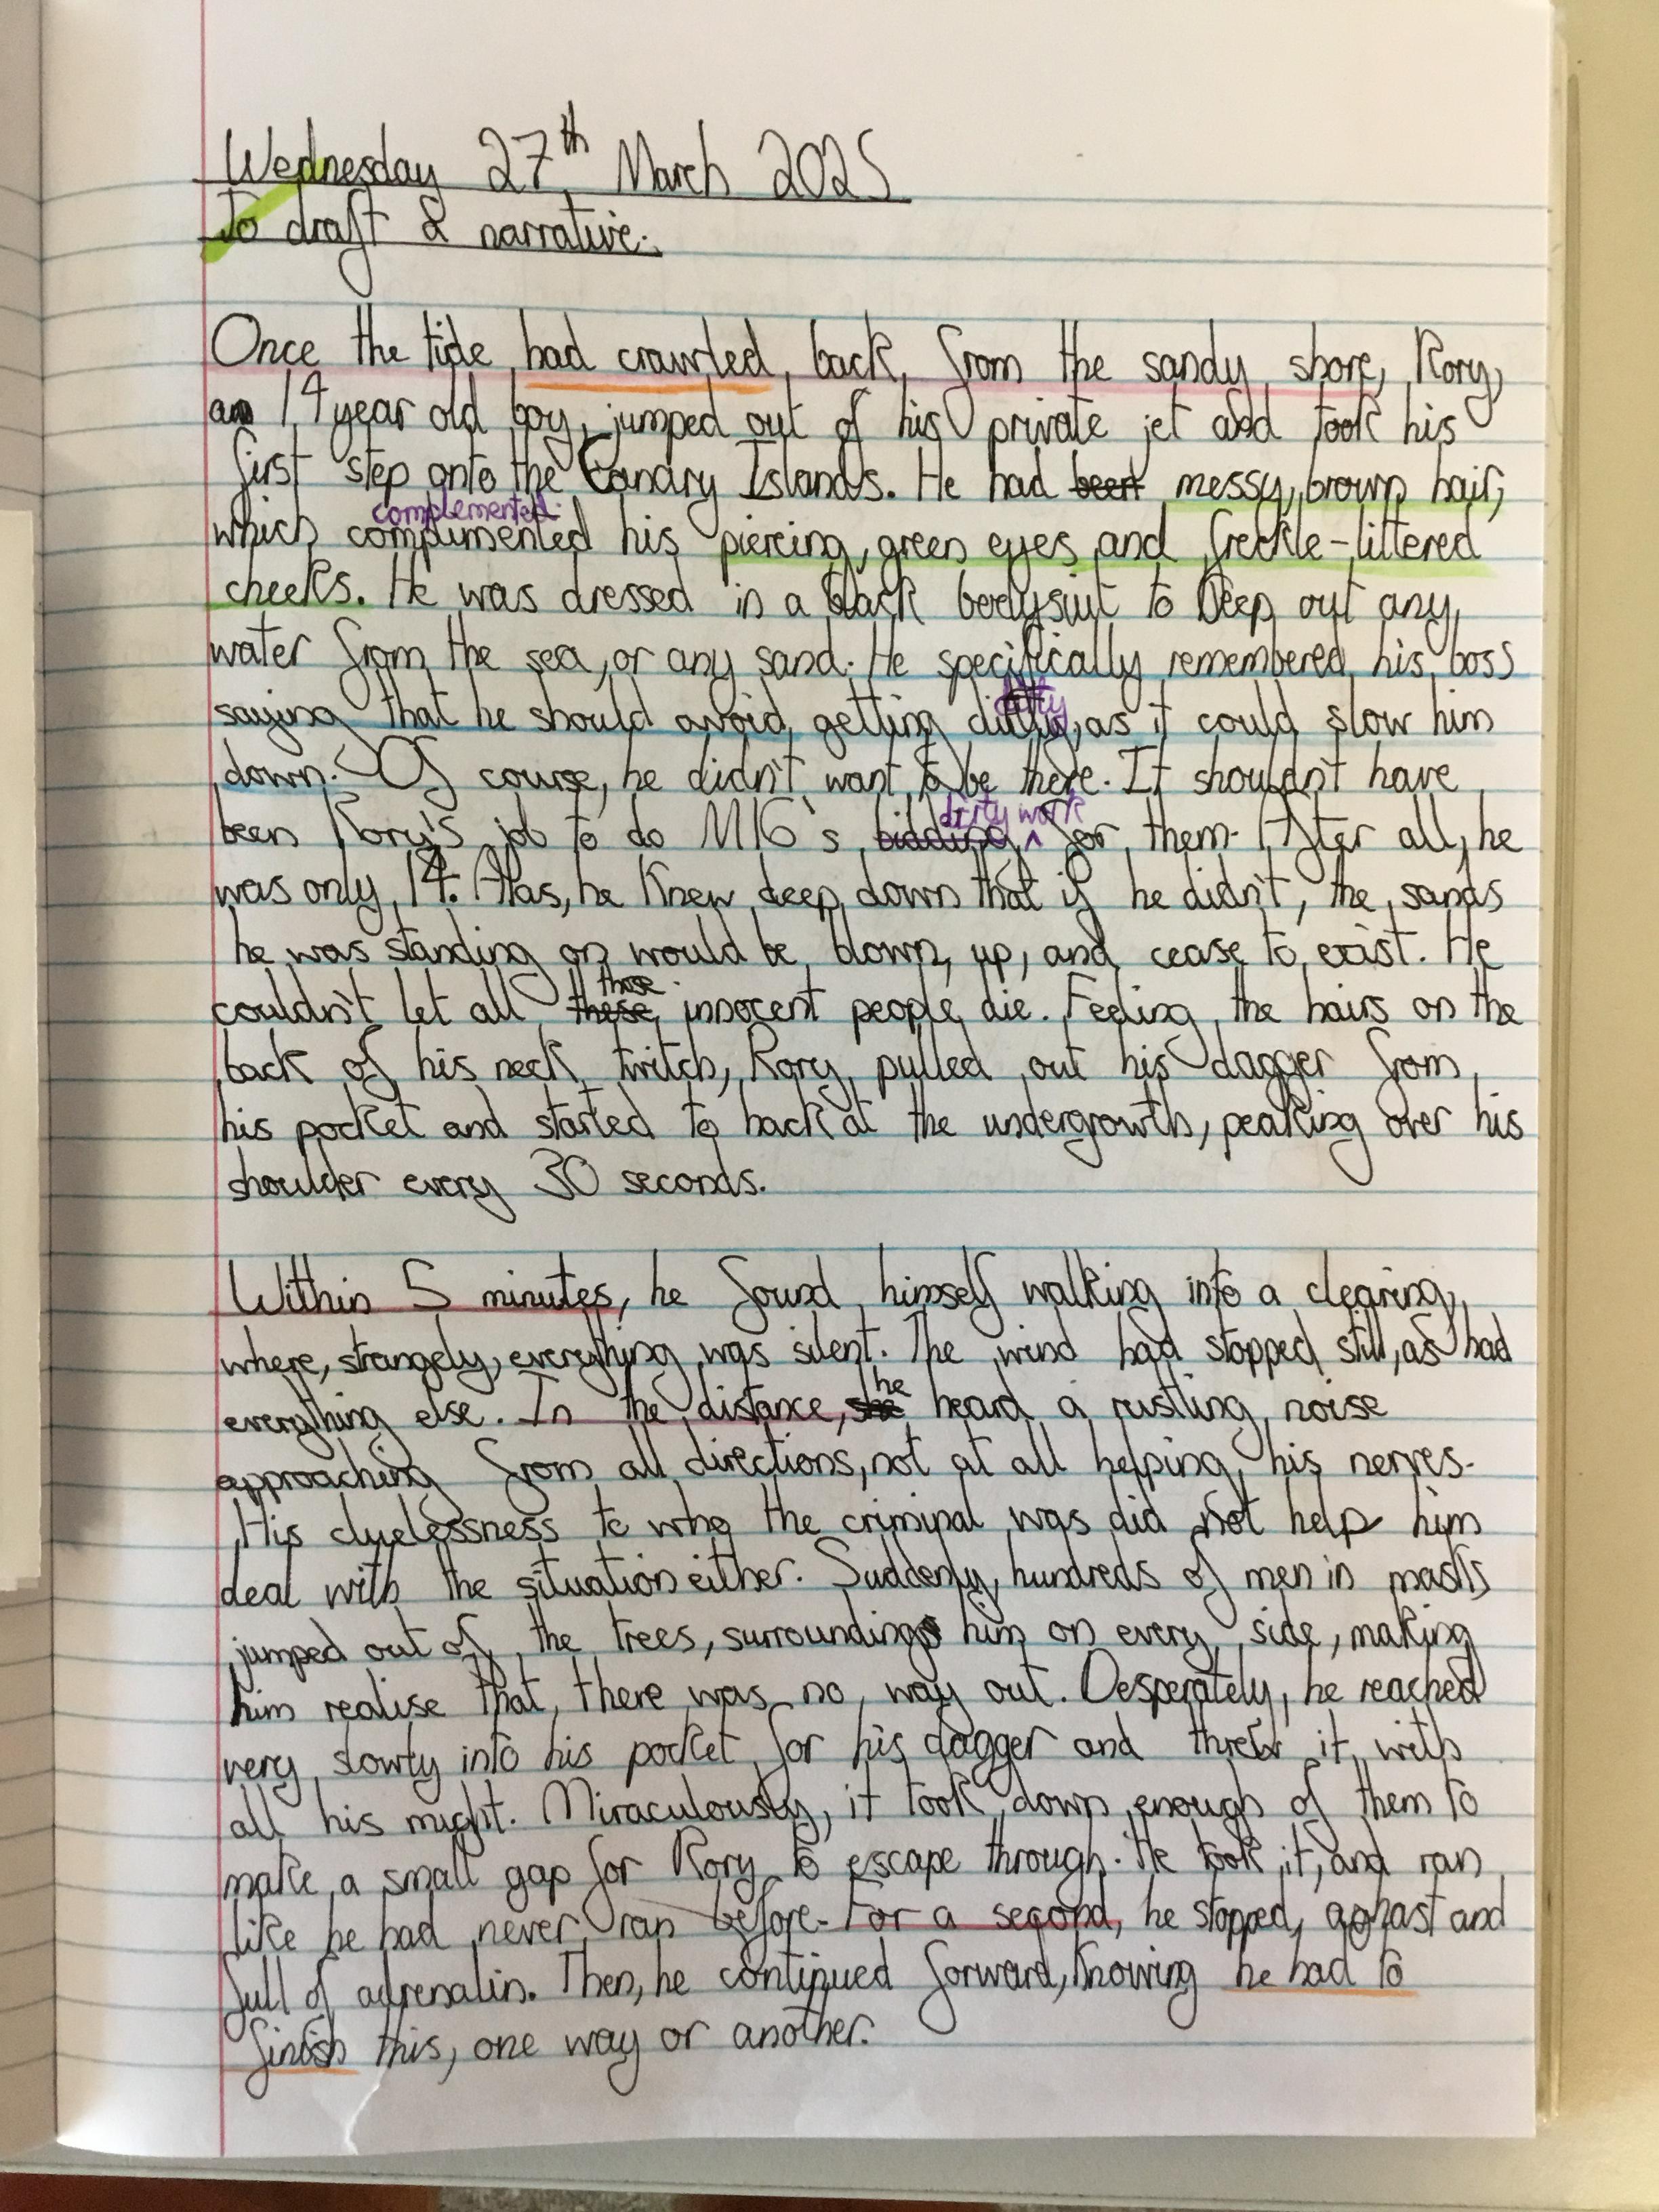 Wednesday 27th March 2025
To draft a narrative.
Once the tide had crawled back from the sandy shore, Rory,
a 14 year old boy, jumped out of his private jet and took his
first step onto the Canary Islands. He had been messy, brown hair,
complemented
which complimented his piercing, green eyes and freckle-littered
cheeks. He was dressed in a black bodysuit to keep out any
water from the sea, or any sand. He specifically remembered his boss
saying that he should avoid getting dirty, as it could slow him
down. Of course, he didn't want to be there. It shouldn't have
dirty work
been Rory's job to do MI6's bidding ^ for them. After all, he
was only 14. Alas, he knew deep down that if he didn't, the sands
he was standing on would be blown up, and cease to exist. He
those
couldn't let all these innocent people die. Feeling the hairs on the
back of his neck twitch, Rory pulled out his dagger from
his pocket and started to hack at the undergrowth, peaking over his
shoulder every 30 seconds.
Within 5 minutes, he found himself walking into a clearing,
where, strangely, everything was silent. The wind had stopped still, as had
he
everything else. In the distance, she heard a rustling noise
approaching from all directions, not at all helping his nerves.
His cluelessness to who the criminal was did not help him
deal with the situation either. Suddenly, hundreds of men in masks
jumped out of the trees, surrounding him on every side, making
him realise that there was no way out. Desperately, he reached
very slowly into his pocket for his dagger and threw it with
all his might. Miraculously, it took down enough of them to
make a small gap for Rory to escape through. He took it, and ran
like he had never ran before. For a second, he stopped, aghast and
full of adrenalin. Then, he continued forward, knowing he had to
finish this, one way or another.